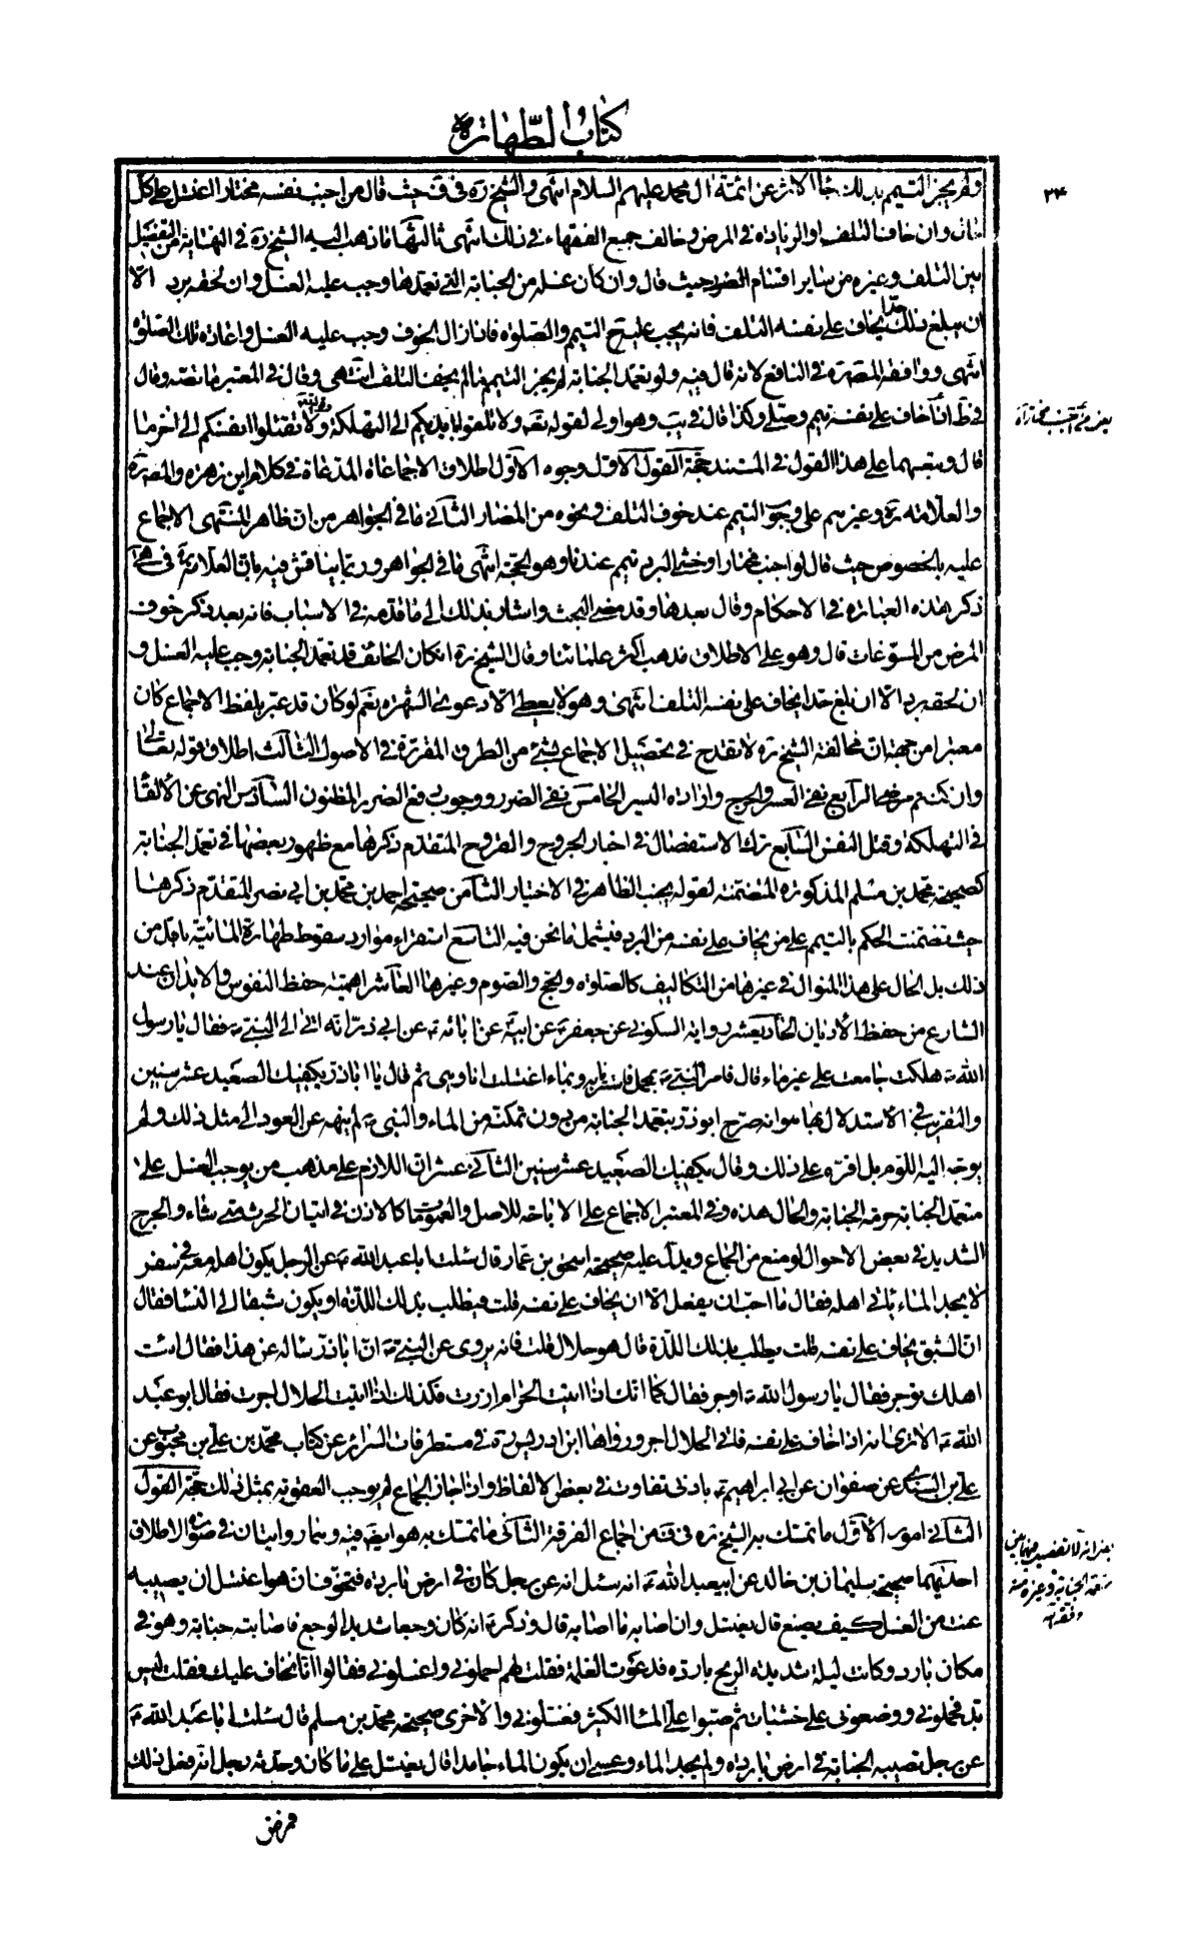 كتاب الطهارة
٣٤
ولم يجز التيمم بذلك جاء الاثر عن ائمة ال محمد عليهم السلام انتهى والشيخ ره في ف حيث قال من اجنب نفسه مختارا اغتسل على كل
حال وان خاف التلف او الزيادة في المرض وخالف جميع الفقهاء في ذلك انتهى ثالثها ما ذهب اليه الشيخ ره في النهاية من التفصيل
بين التلف وغيره من سائر اقسام الضرر حيث قال وان كان غسله من الجنابة التي تعمدها وجب عليه الغسل وان لحقه برد الا
ان يبلغ ذلك حدا يخاف على نفسه التلف فانه يجب عليه ح التيمم والصلوة فاذا زال الخوف وجب عليه الغسل واعادة تلك الصلوة
انتهى ووافقه المص ره في النافع لانه قال فيه ولو تعمد الجنابة لم يجز التيمم ما لم يخف التلف انتهى وقال في المعتبر ما نصه وقال
في ط اذا خاف على نفسه تيمم وصلى وكذا قال في يب وهو اولى لقوله تعه ولا تلقوا بايديكم الى التهلكة وقوله تعه ولا تقتلوا انفسكم الى اخر ما
قال وتبعهما على هذا القول في المستند حجة القول الاول وجوه الاول اطلاق الاجماعات المدعاة في كلام ابن زهره والمص ره
والعلامة ره وغيرهم على وجوب التيمم عند خوف التلف ونحوه من المضار الثاني ما في الجواهر من ان ظاهر المنتهى الاجماع
عليه بالخصوص حيث قال لو اجنب مختارا وخشى البرد تيمم عندنا وهو الحجة انتهى ما في الجواهر وربما يناقش فيه بان العلامة ره في هى
ذكر هذه العبارة في الاحكام وقال بعدها وقد مضى البحث واشار بذلك الى ما قدمه في الاسباب فانه بعد ذكر خوف
المرض من المسوغات قال وهو على الاطلاق مذهب اكثر علمائنا وقال الشيخ ره ان كان الخائف قد تعمد الجنابة وجب عليه الغسل و
ان لحقه برد الا ان بلغ حدا يخاف على نفسه التلف انتهى وهو لا يعطى الا دعوى الشهرة نعم لو كان قد عبر بلفظ الاجماع كان
معتبرا من جهة ان مخالفة الشيخ ره لا تقدح في تحصيل الاجماع بشئ من الطرق المقررة في الاصول الثالث اطلاق قوله تعالى
وان كنتم مرضى الرابع نفى العسر والحرج وارادة اليسر الخامس نفى الضرر ووجوب دفع الضرر المظنون السادس النهى عن الالقاء
في التهلكة وقتل النفس السابع ترك الاستفصال في اخبار الجروح والقروح المتقدم ذكرها مع ظهور بعضها في تعمد الجنابة
كصحيحة محمد بن مسلم المذكورة المتضمنة لقوله يجنب الظاهر في الاختيار الثامن صحيحة احمد بن محمد بن ابي نصر المتقدم ذكرها
حيث تضمنت الحكم بالتيمم على من يخاف على نفسه من البرد فيشمل ما نحن فيه التاسع استقراء موارد سقوط طهارة المائية باقل من
ذلك بل الحال على هذا المنوال في غيرها من التكاليف كالصلوة والحج والصوم وغيرها العاشر اهمية حفظ النفوس والابدان عند
الشارع من حفظ الاديان الحاديعشر رواية السكوني عن جعفر ع عن ابيه عن ابائه ع عن ابي ذر انه اتى الى النبي ص فقال يا رسول
الله ص هلكت جامعت على غير ماء قال فامر النبي ص بمحمل فاستترنا به وبماء اغتسلت انا وهى ثم قال يا ابا ذر يكفيك الصعيد عشر سنين
والتقريب في الاستدلال بها هو انه صرح ابو ذر بتعمد الجنابة من دون تمكنه من الماء والنبي ص لم ينهه عن العود الى مثل ذلك ولم
يوجه اليه اللوم بل اقره على ذلك وقال يكفيك الصعيد عشر سنين الثاني عشر ان اللازم على مذهب من يوجب الغسل على
متعمد الجنابة حرمة الجنابة والحال هذه وفي المعتبر الاجماع على الاباحة للاصل والعمومات كالاذن في اتيان الحرث متى شاء والحرج
الشديد في بعض الاحوال لو منع من الجماع ويدل عليه صحيحة اسحق بن عمار قال سئلت ابا عبد الله ع عن الرجل يكون اهله معه في سفر
لا يجد الماء ياتى اهله فقال ما احب ان يفعل الا ان يخاف على نفسه قلت فيطلب بذلك اللذة او يكون شبقا الى النساء فقال
ان الشبق يخاف على نفسه قلت يطلب بذلك اللذة قال هو حلال قلت فانه يروى عن النبي ص ان ابا ذر ساله عن هذا فقال ائت
اهلك توجر فقال يا رسول الله ص اوجر فقال كما انك اذا اتيت الحرام ازرت فكذلك اذا اتيت الحلال اجرت فقال ابو عبد
الله ع الا ترى انه اذا خاف على نفسه فاتى الحلال اجر ورواها ابن ادريس ره في مستطرفات السرائر عن كتاب محمد بن علي بن محبوب عن
علي بن السندي عن صفوان عن ابي ابراهيم ع بادنى تفاوت في بعض الالفاظ واذا جاز الجماع لم يوجب العقوبة بمثل ذلك حجة القول
الثاني امور الاول ما تمسك به الشيخ ره في ف من اجماع الفرقة الثاني ما تمسك به هو ايضا فيه وبما روايتان في صورة الاطلاق
احديهما صحيحة سليمان بن خالد عن ابيعبد الله ع انه سئل انه عن رجل كان في ارض باردة فتخوف ان هو اغتسل ان يصيبه
عنت من الغسل كيف يصنع قال يغتسل وان اصابه ما اصابه قال وذكر ع انه كان وجعا شديد الوجع فاصابته جنابة وهو في
مكان بارد وكانت ليلة شديدة الريح باردة فدعوت الغلمة فقلت لهم احملوني واغسلوني فقالوا انا نخاف عليك فقلت ليس
بد فحملوني ووضعوني على خشبات ثم صبوا على الماء الكثير فغسلوني والاخرى صحيحة محمد بن مسلم قال سئلت ابا عبد الله ع
عن رجل تصيبه الجنابة في ارض باردة ولم يجد الماء وعسى ان يكون الماء جامدا قال يغتسل على ما كان وحدثه رجل انه فعل ذلك
فمرض